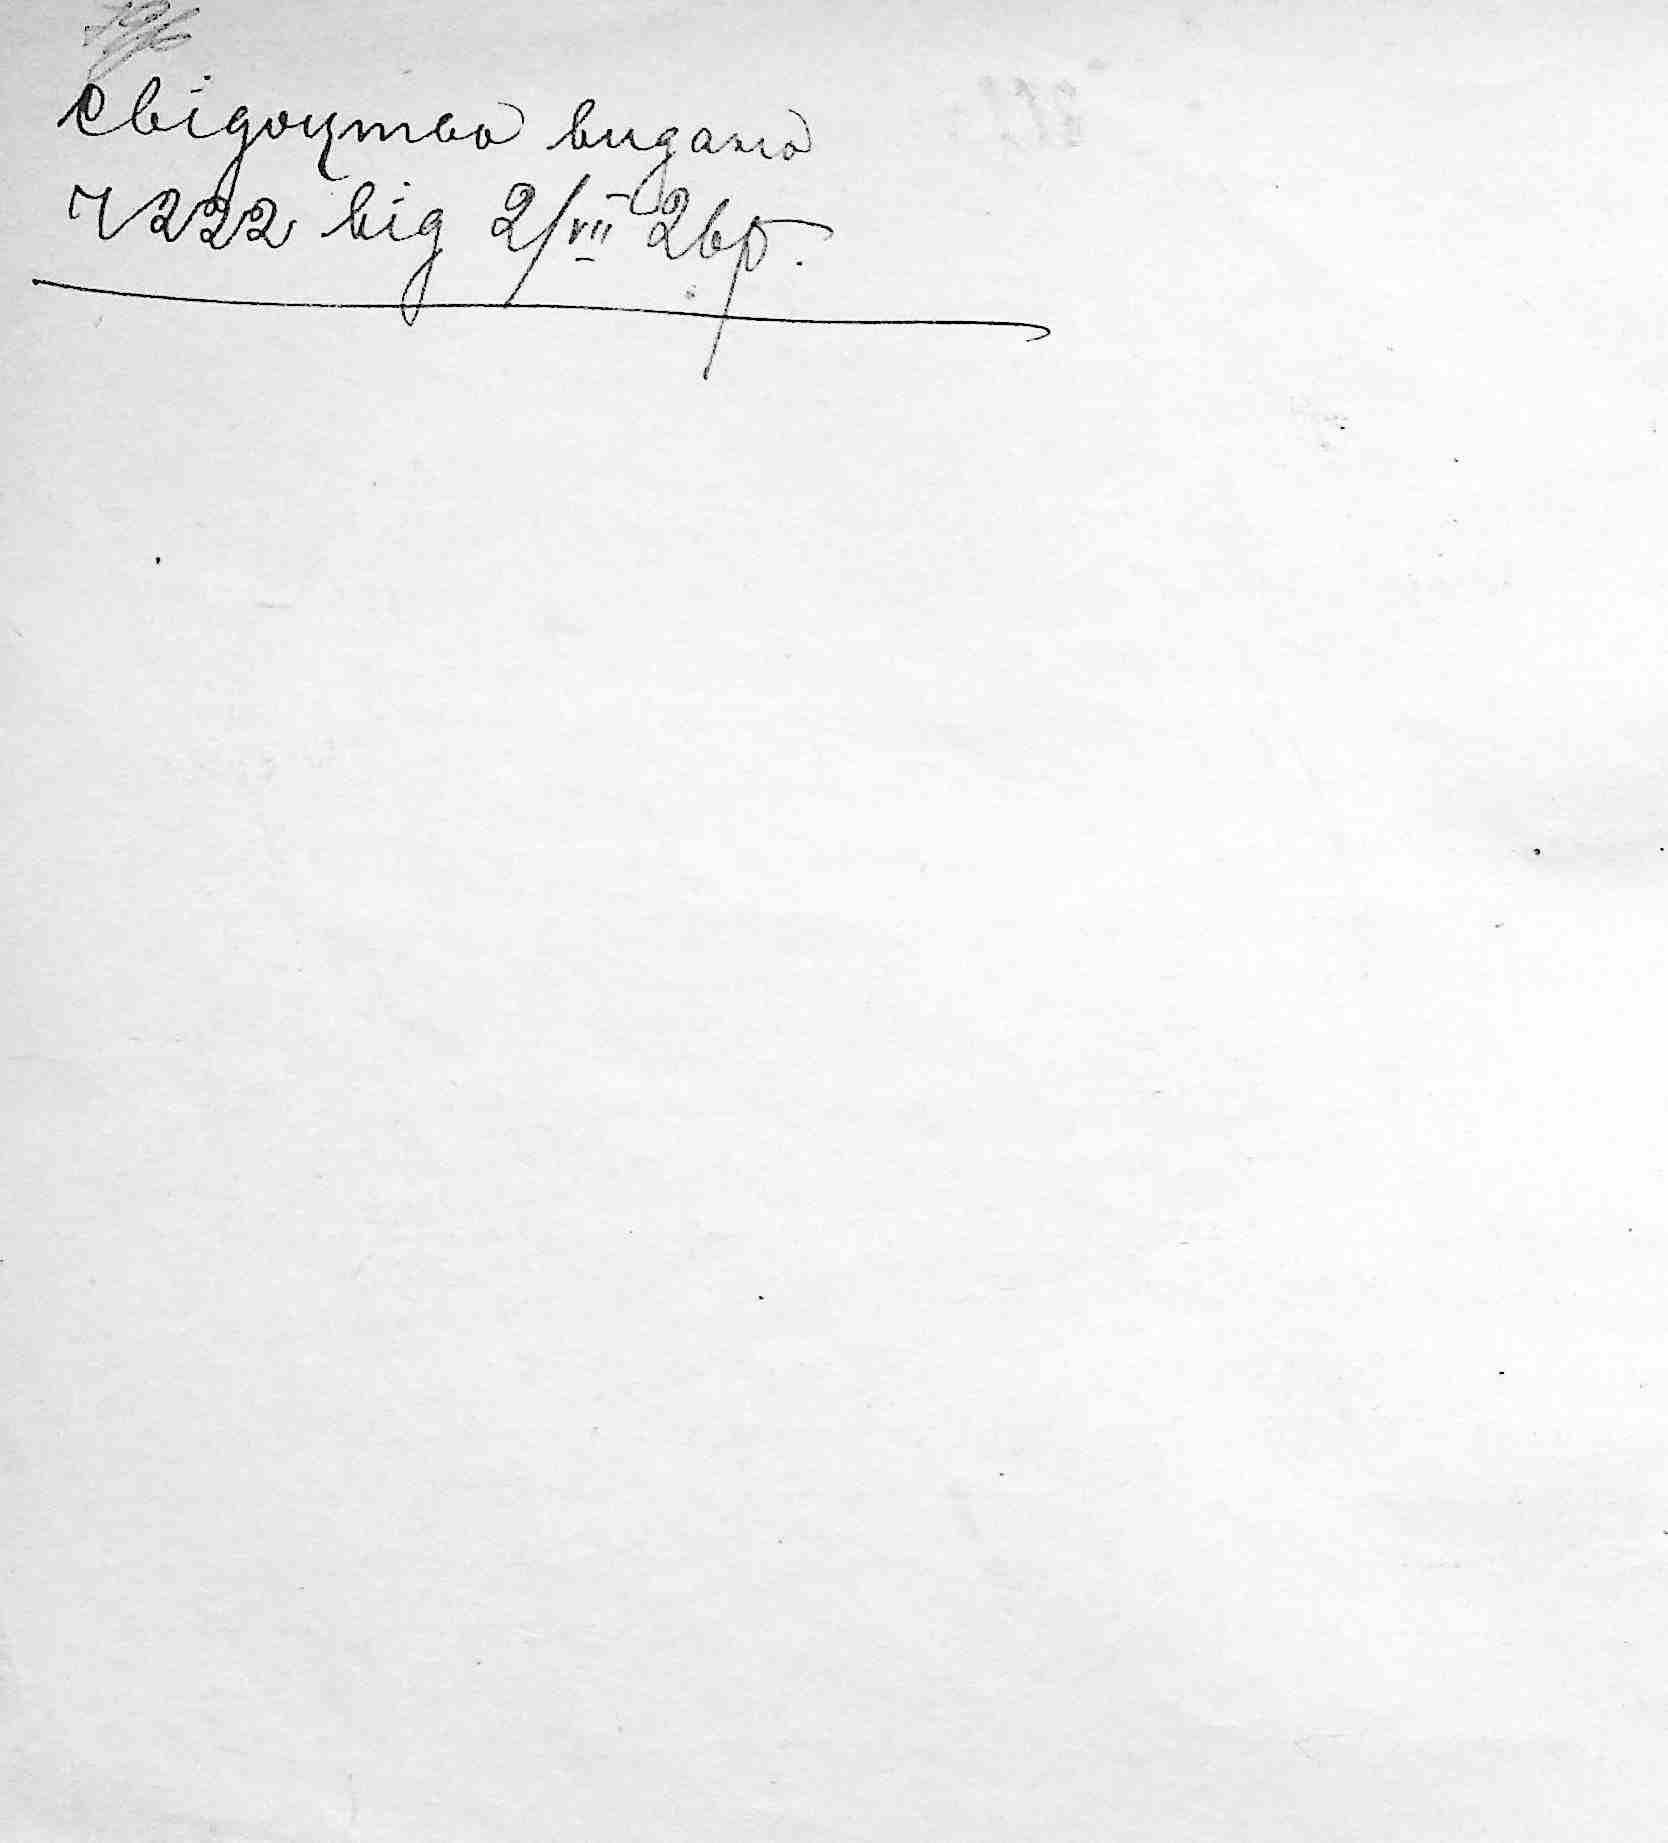 Свідоцтво видано
ч 222 від 2/VII 26 р.